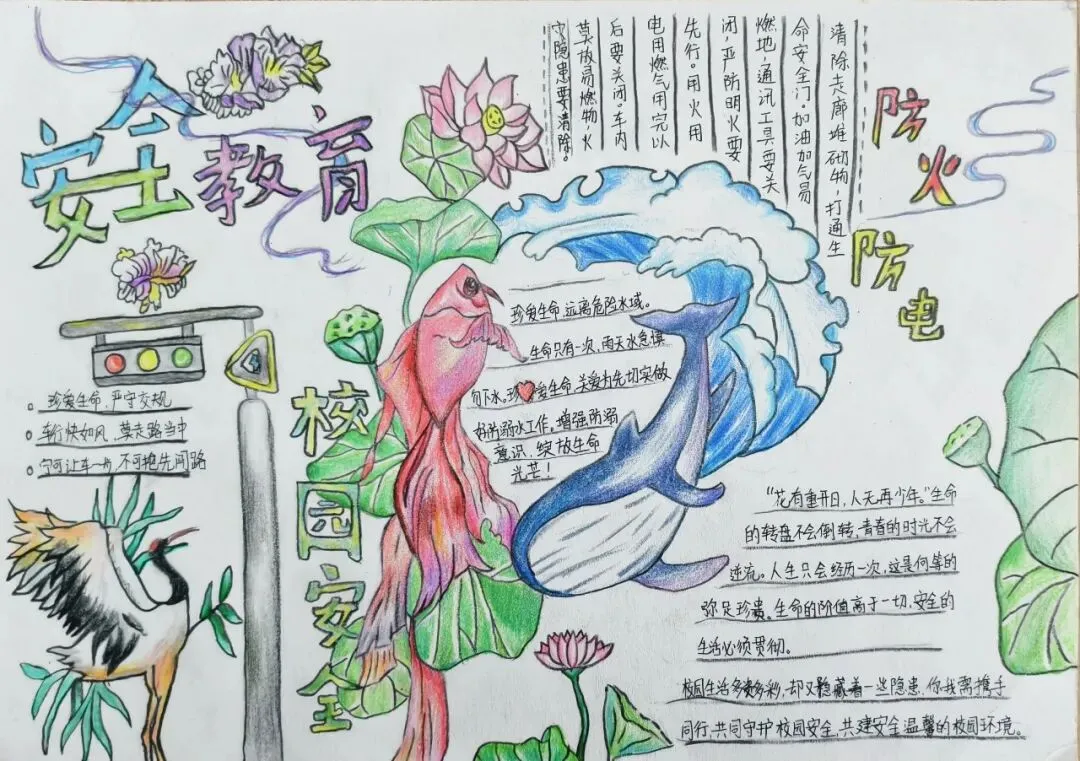 安全教育
清除走廊堆砌物，打通生
命安全门。加油加气易
燃地，通讯工具要关
闭，严防明火要
先行。用火用
电用燃气用完以
后要关闭。车内
莫放易燃物，火
灾隐患要清除。
防火
防电
珍爱生命，远离危险水域。
生命只有一次，雨天水急慎
勿下水。珍❤爱生命，关爱为先切实做
好防溺水工作，增强防溺
意识，绽放生命
光芒！
珍爱生命，严守交规
车行快如风，莫走路当中
宁可让车一步，不可抢先间路
校园安全
“花有重开日，人无再少年。”生命
的转盘不会倒转，青春的时光不会
逆流。人生只会经历一次，这是何等的
弥足珍贵。生命的价值高于一切，安全的
生活必须贯彻。
校园生活多姿多彩，却又隐藏着一些隐患，你我需携手
同行，共同守护校园安全，共建安全温馨的校园环境。